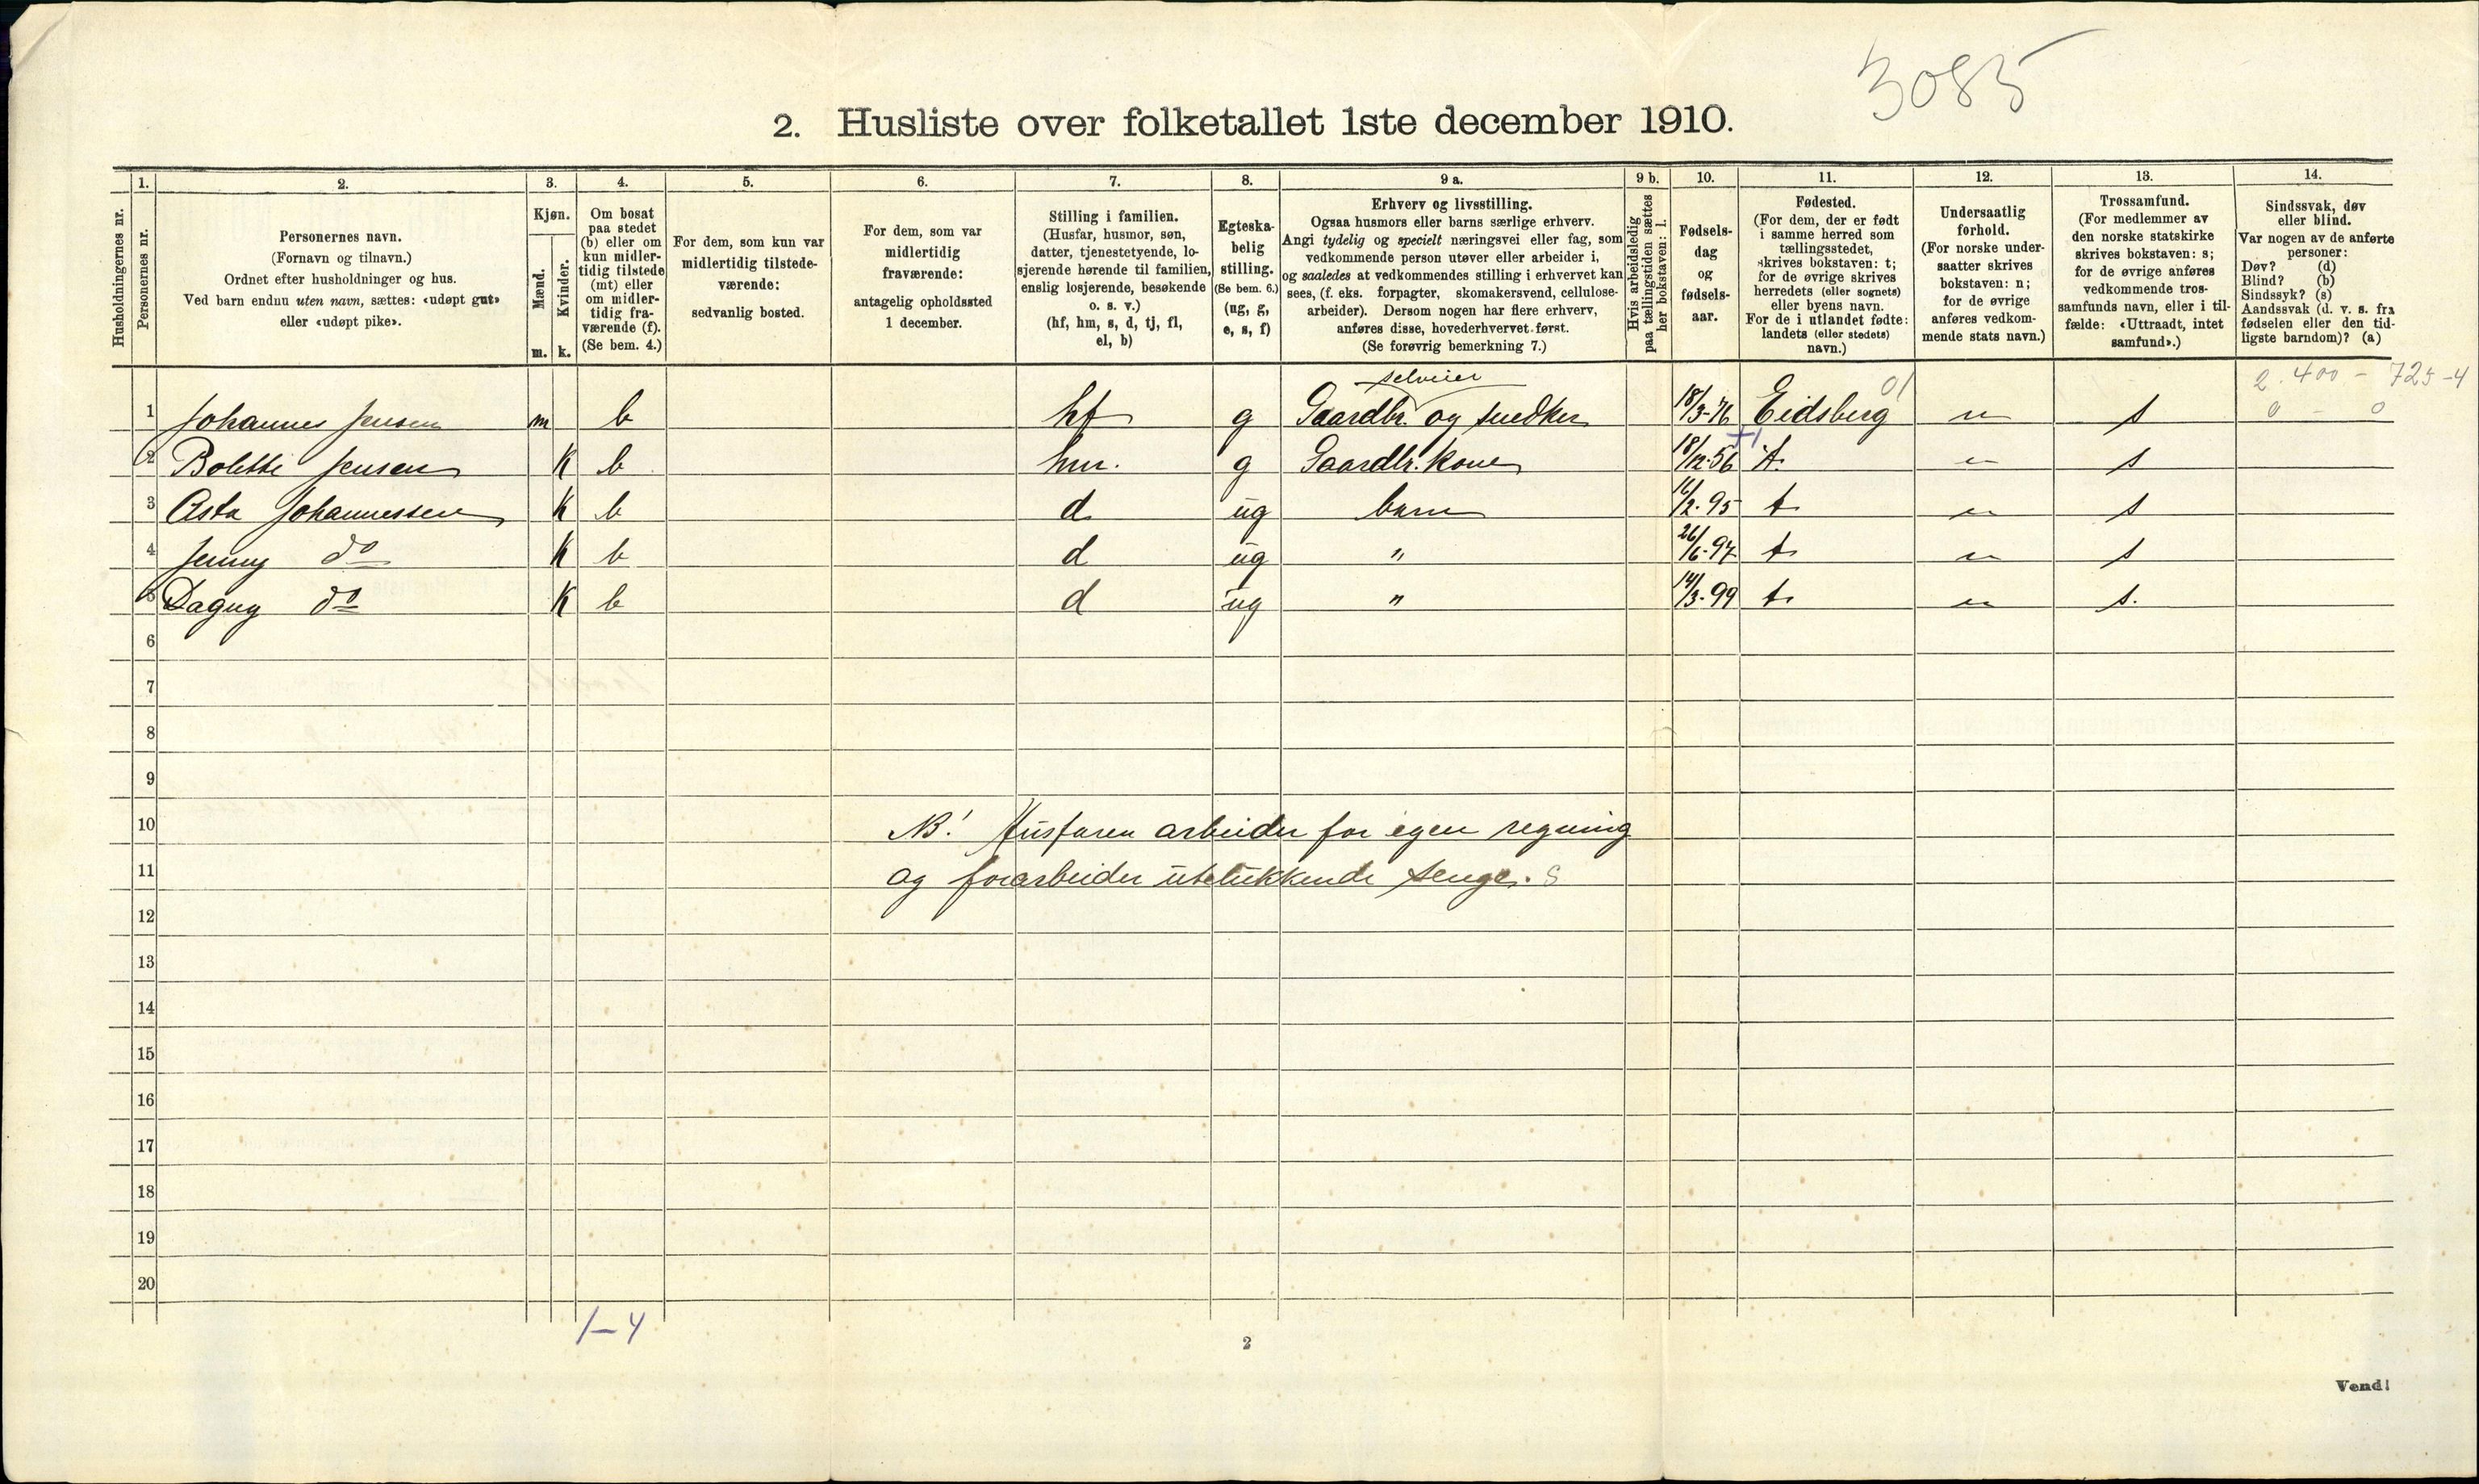 3085
2. Husliste over folketallet 1ste december 1910.
Husholdningernes nr.
1. Personernes nr.
2. Personernes navn.
(Fornavn og tilnavn.)
Ordnet efter husholdninger og hus.
Ved barn endnu uten navn, sættes: «udøpt gut»
eller «udøpt pike».
3. Kjøn.
Mænd. m.
Kvinder. k.
4. Om bosat
paa stedet
(b) eller om
kun midler-
tidig tilstede
(mt) eller
om midler-
tidig fra-
værende (f).
(Se bem. 4.)
5. For dem, som kun var
midlertidig tilstede-
værende:
sedvanlig bosted.
6. For dem, som var
midlertidig
fraværende:
antagelig opholdssted
1 december.
7. Stilling i familien.
(Husfar, husmor, søn,
datter, tjenestetyende, lo-
sjerende hørende til familien,
enslig losjerende, besøkende
o. s. v.)
(hf, hm, s, d, tj, fl,
el, b)
8. Egteska-
belig
stilling.
(Se bem. 6.)
(ug, g,
e, s, f)
9 a. Erhverv og livsstilling.
Ogsaa husmors eller barns særlige erhverv.
Angi tydelig og specielt næringsvei eller fag, som
vedkommende person utøver eller arbeider i,
og saaledes at vedkommendes stilling i erhvervet kan
sees, (f. eks. forpagter, skomakersvend, cellulose-
arbeider). Dersom nogen har flere erhverv,
anføres disse, hovederhvervet først.
(Se forøvrig bemerkning 7.)
9 b. Hvis arbeidsledig
paa tællingstiden sættes
her bokstaven: l.
10. Fødsels-
dag
og
fødsels-
aar.
11. Fødested.
(For dem, der er født
i samme herred som
tællingsstedet,
skrives bokstaven: t;
for de øvrige skrives
herredets (eller sognets)
eller byens navn.
For de i utlandet fødte:
landets (eller stedets)
navn.)
12. Undersaatlig
forhold.
(For norske under-
saatter skrives
bokstaven: n;
for de øvrige
anføres vedkom-
mende stats navn.)
13. Trossamfund.
(For medlemmer av
den norske statskirke
skrives bokstaven: s;
for de øvrige anføres
vedkommende tros-
samfunds navn, eller i til-
fælde: «Uttraadt, intet
samfund».)
14. Sindssvak, døv
eller blind.
Var nogen av de anførte
personer:
Døv? (d)
Blind? (b)
Sindssyk? (s)
Aandssvak (d. v. s. fra
fødselen eller den tid-
ligste barndom)? (a)
selveier 01 2.400 - 725-4
1 Johannes Jensen m b hf g Gaardbr. og snedker 18/3-76 Eidsberg n s 0 - 0
2 Bolette Jensen k b hm. g Gaardbr. kone 18/12-56 t. n s
3 Asta Johannessen k b d ug barn 16/2-95 t n s
4 Jenny do k b d ug " 26/6-97 t n s
5 Dagny do k b d ug " 14/3-99 t. n s.
6
7
8
9
10 NB! Husfaren arbeider for egen regning
11 og forarbeider utelukkende senge. S
12
13
14
15
16
17
18
19
20
1-4
2
Vend!